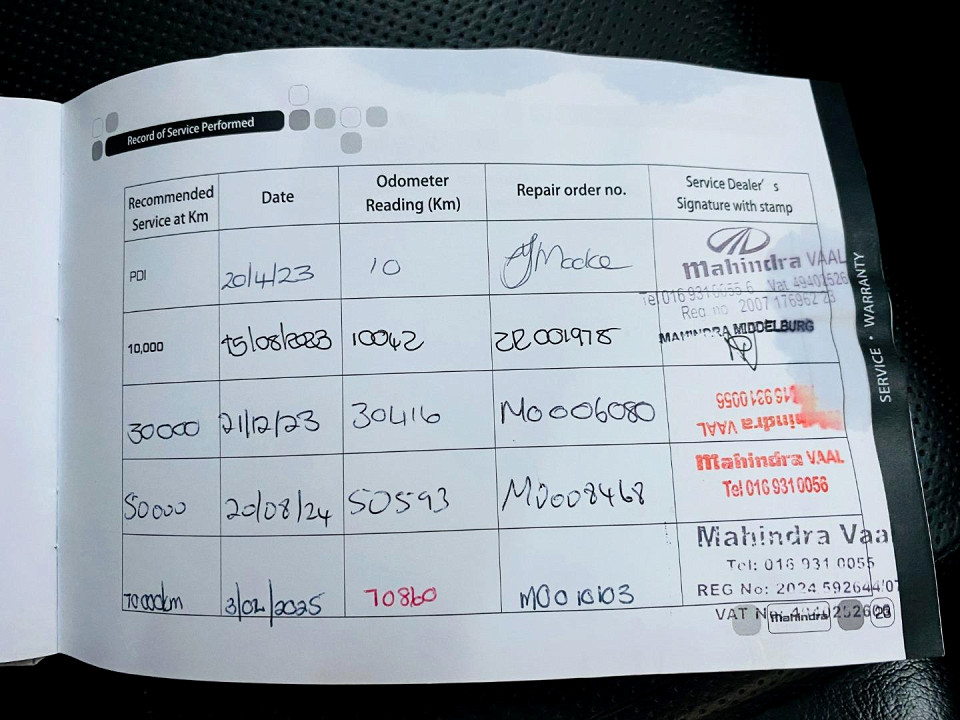 Record of Service Performed
Recommended Service at Km
Date
Odometer Reading (Km)
Repair order no.
Service Dealer's Signature with stamp
PDI 20/4/23 10
Mahindra VAAL
Tel 016 931 0055
Reg no. 2007
10,000 15/08/2023 10042
MAHINDRA MIDDELBURG
30000 21/12/23 30416 M0006080
016 931 0056
Mahindra VAAL
50000 20/08/24 50593 M0008468
Mahindra VAAL
Tel 016 931 0056
70000km 3/02/2025 70860 M0010103
Mahindra Vaal
Tel: 016 931 0055
REG No: 2024 592644/07
VAT No:
mahindra
23
SERVICE • WARRANTY